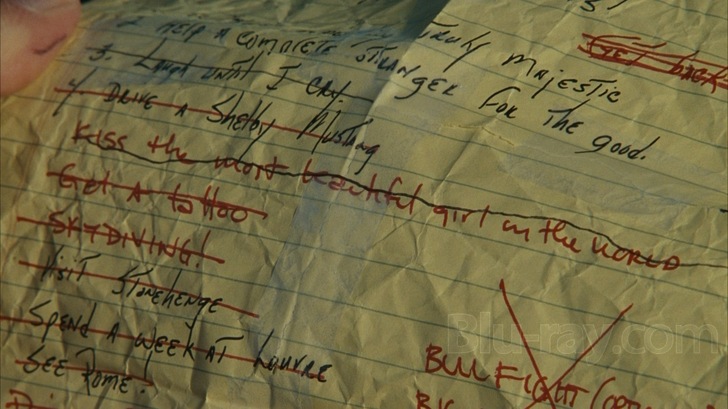 HELP A COMPLETE STRANGER FOR THE good.
TRULY MAJESTIC
3. Laugh until I CRY.
4) DRIVE A Shelby Mustang
Kiss the most beautiful girl in the WORLD
Get A tattoo
SKYDIVING!
Visit Stonehenge
SPEND A WEEK AT Louvre
SEE ROME!
BULL FIGHT
Blu-ray.com